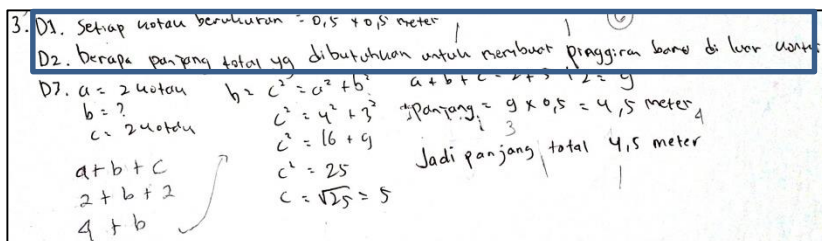 3. D1. Setiap kotak berukuran = 0,5 x 0,5 meter
D2. berapa panjang total yg dibutuhkan untuk membuat pinggiran baru di luar
D3. a = 2 kotak
b = ?
c = 2 kotak
a + b + c
2 + b + 2
4 + b
b = c² = a² + b²
c² = 4² + 3²
c² = 16 + 9
c² = 25
c = √25 = 5
a + b + c = 2 + 5 + 2 = 9
panjang = 9 x 0,5 = 4,5 meter
Jadi panjang total 4,5 meter